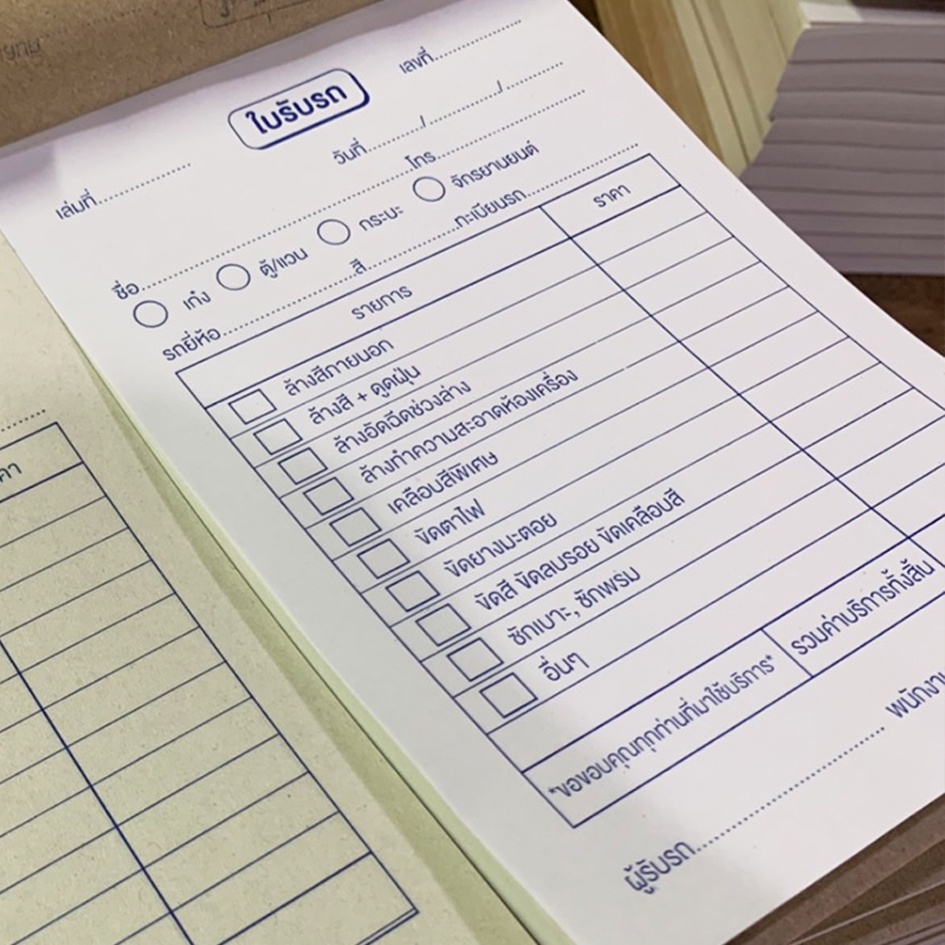 ใบรับรถ
เล่มที่.................... เลขที่....................
วันที่............/................/..............
ชื่อ..........................................................โทร................................
เก๋ง ตู้/แวน กระบะ จักรยานยนต์
รถยี่ห้อ..............................สี....................ทะเบียนรถ.........................
รายการ ราคา
ล้างสีภายนอก
ล้างสี + ดูดฝุ่น
ล้างอัดฉีดช่วงล่าง
ล้างทำความสะอาดห้องเครื่อง
เคลือบสีพิเศษ
ขัดตาไฟ
ขัดยางมะตอย
ขัดสี ขัดลบรอย ขัดเคลือบสี
ซักเบาะ, ซักพรม
อื่นๆ
*ขอขอบคุณทุกท่านที่มาใช้บริการ* รวมค่าบริการทั้งสิ้น
ผู้รับรถ........................................ พนักงาน